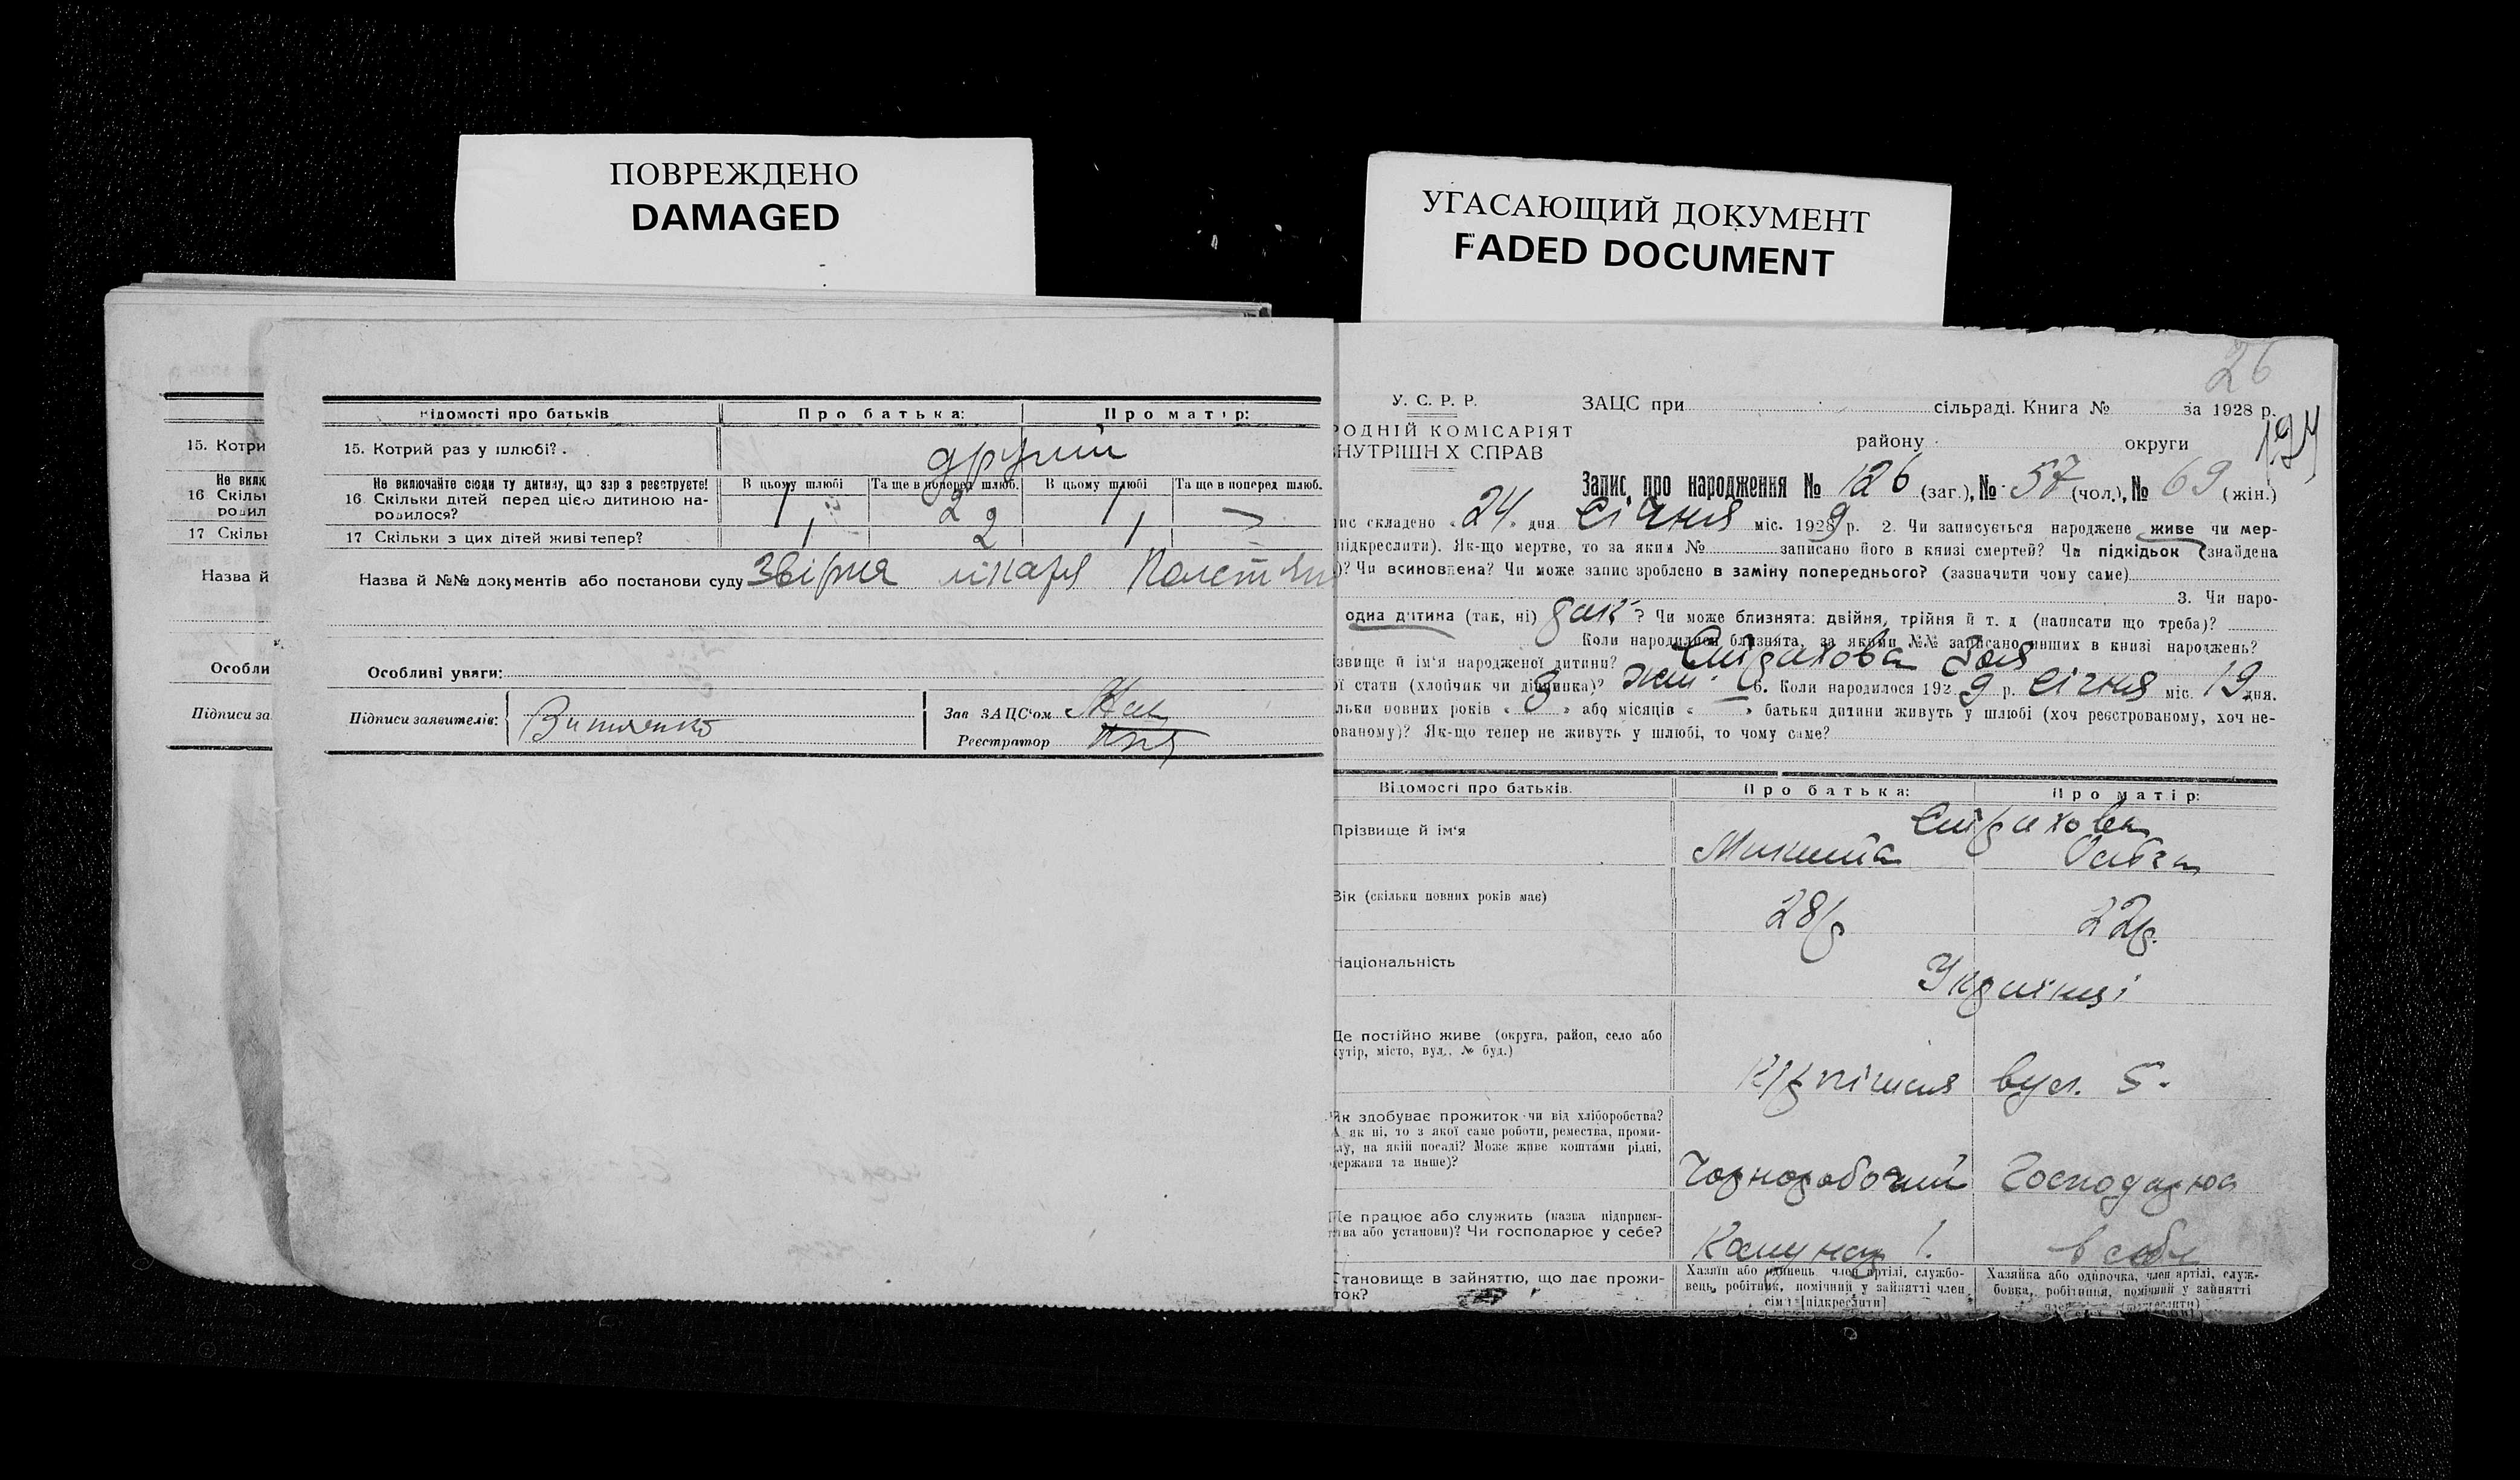 ПОВРЕЖДЕНО
DAMAGED
УГАСАЮЩИЙ ДОКУМЕНТ
FADED DOCUMENT
15. Котри
Не вклю
16 Скільк
родил
17 Скільк
Назва й
Особли
Підписи за
Відомості про батьків
Про батька:
Про матір:
15. Котрий раз у шлюбі?
другий
Не включайте сюди ту дитину, що зар з реєструєте!
16. Скільки дітей перед цією дитиною на-
родилося?
В цьому шлюбі
Та ще в поперед шлюб.
В цьому шлюбі
Та ще в поперед шлюб.
1 2 1 —
17 Скільки з цих дітей живі тепер?
1 2 1 —
Назва й №№ документів або постанови суду
лікаря
Особливі уваги:
Підписи заявителів:
Зав ЗАЦС'ом
Реєстратор
26
У. С. Р. Р.
РОДНІЙ КОМІСАРІЯТ
НУТРІШН Х СПРАВ
ЗАЦС при сільраді. Книга № за 1928 р.
району округи
Запис про народження № 126 (заг.), № 57 (чол.), № 69 (жін.)
пис складено «24» дня Січня міс. 1929 р. 2. Чи записується народжене живе чи мер-
підкреслити). Як-що мертве, то за яким № записано його в книзі смертей? Чи підкідьок (знайдена
)? Чи всиновлена? Чи може запис зроблено в заміну попереднього? (зазначити чому саме)
3. Чи наро-
одна дитина (так, ні) так ? Чи може близнята: двійня, трійня й т. д (написати що треба)?
Коли народилися близнята, за якими №№ записано инших в книзі народжень?
ізвище й ім'я народженої дитини?
ої стати (хлопчик чи дівчинка)? жін. 6. Коли народилося 1929 р. Січня міс. 19 дня.
льки повних років «3» або місяців « — » батьки дитини живуть у шлюбі (хоч реєстрованому, хоч не-
ованому)? Як-що тепер не живуть у шлюбі, то чому саме?
Відомості про батьків.
Про батька:
Про матір:
Прізвище й ім'я
Микита
Вік (скільки повних років має)
28 р
22 р.
Національність
Українці
Де постійно живе (округа, район, село або
хутір, місто, вул., № буд.)
вул. 5.
Як здобуває прожиток чи від хліборобства?
А як ні, то з якої саме роботи, ремества, проми-
слу, на якій посаді? Може живе коштами рідні,
держави та инше)?
Чорноробочий
Господарює
Де працює або служить (назва підприєм-
ства або установи)? Чи господарює у себе?
в себе
Становище в зайняттю, що дає прожи-
ток?
Хазяїн або одинець член артілі, службо-
вець, робітник, помічний у зайнятті член
сім'ї [підкреслити]
Хазяйка або одиночка, член артілі, служ-
бовка, робітниця, помічний у зайнятті